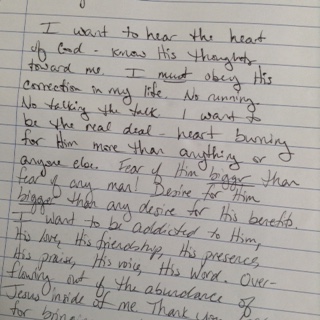 I want to hear the heart
of God - know His thoughts
toward me. I must obey His
correction in my life. No running.
No talking the talk. I want to
be the real deal - heart burning
for Him more than anything or
anyone else. Fear of Him bigger than
fear of any man! Desire for Him
bigger than any desire for His benefits.
I want to be addicted to Him,
His love, His friendship, His presence,
His praise, His voice, His Word. Over-
flowing out of the abundance of
Jesus inside of me. Thank you
for